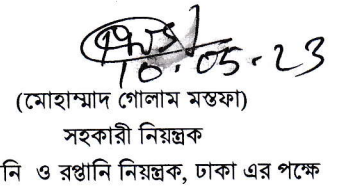 10.05.23
(মোহাম্মাদ গোলাম মস্তফা)
সহকারী নিয়ন্ত্রক
নি ও রপ্তানি নিয়ন্ত্রক, ঢাকা এর পক্ষে